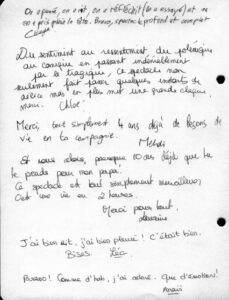 On a pensé, on a rit, on a réfléchit (on a essayé) et on
a pris plein la tête. Bravo, spectacle profond et complet
Du sentiment au ressentiment du polémique
au comique en passant indéniablement
par le tragique, ce spectacle non
seulement fait passer quelques instants de
délice mais en plus met une grande claque.
Merci. Chloé.
Merci, tout simplement. 4 ans déjà de leçons de
vie en ta compagnie.
Et nous alors, pourquoi 10 ans déjà que tu
Ce spectacle est tout simplement merveilleux
une vie en 2 heures.
Merci pour tout,
J'ai bien rit, j'ai bien pleuré ! C'était bien.
Bises. Léa
Bravo ! Comme d'hab, j'ai adoré. Que d'émotions !
Anaïs